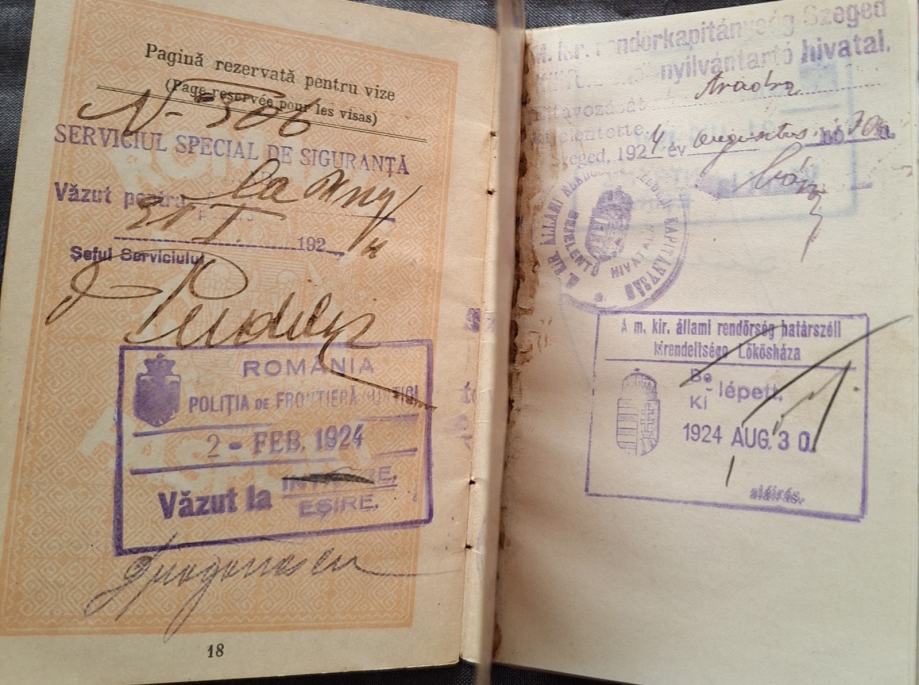 Pagină rezervată pentru vize
(Page reservée pour les visas)
N- 506
SERVICIUL SPECIAL DE SIGURANȚĂ
Văzut pentru la
31 I 1924
Șeful Serviciului
ROMÂNIA
POLIȚIA DE FRONTIERĂ CURTICI
2 - FEB. 1924
Văzut la INTRARE.
EȘIRE.
18
M. kir. rendőrkapitányság Szeged
nyilvántartó hivatal.
Aradra
kijelentette
Szeged, 1924 év augusztus hó 30 n.
M. KIR. ÁLLAMI RENDŐRSÉG SZEGEDI KAPITÁNYSÁG
HIVATALA
A m. kir. állami rendőrség határszéli
kirendeltsége Lőkösháza
Be
Ki lépett.
1924 AUG. 30.
aláírás.